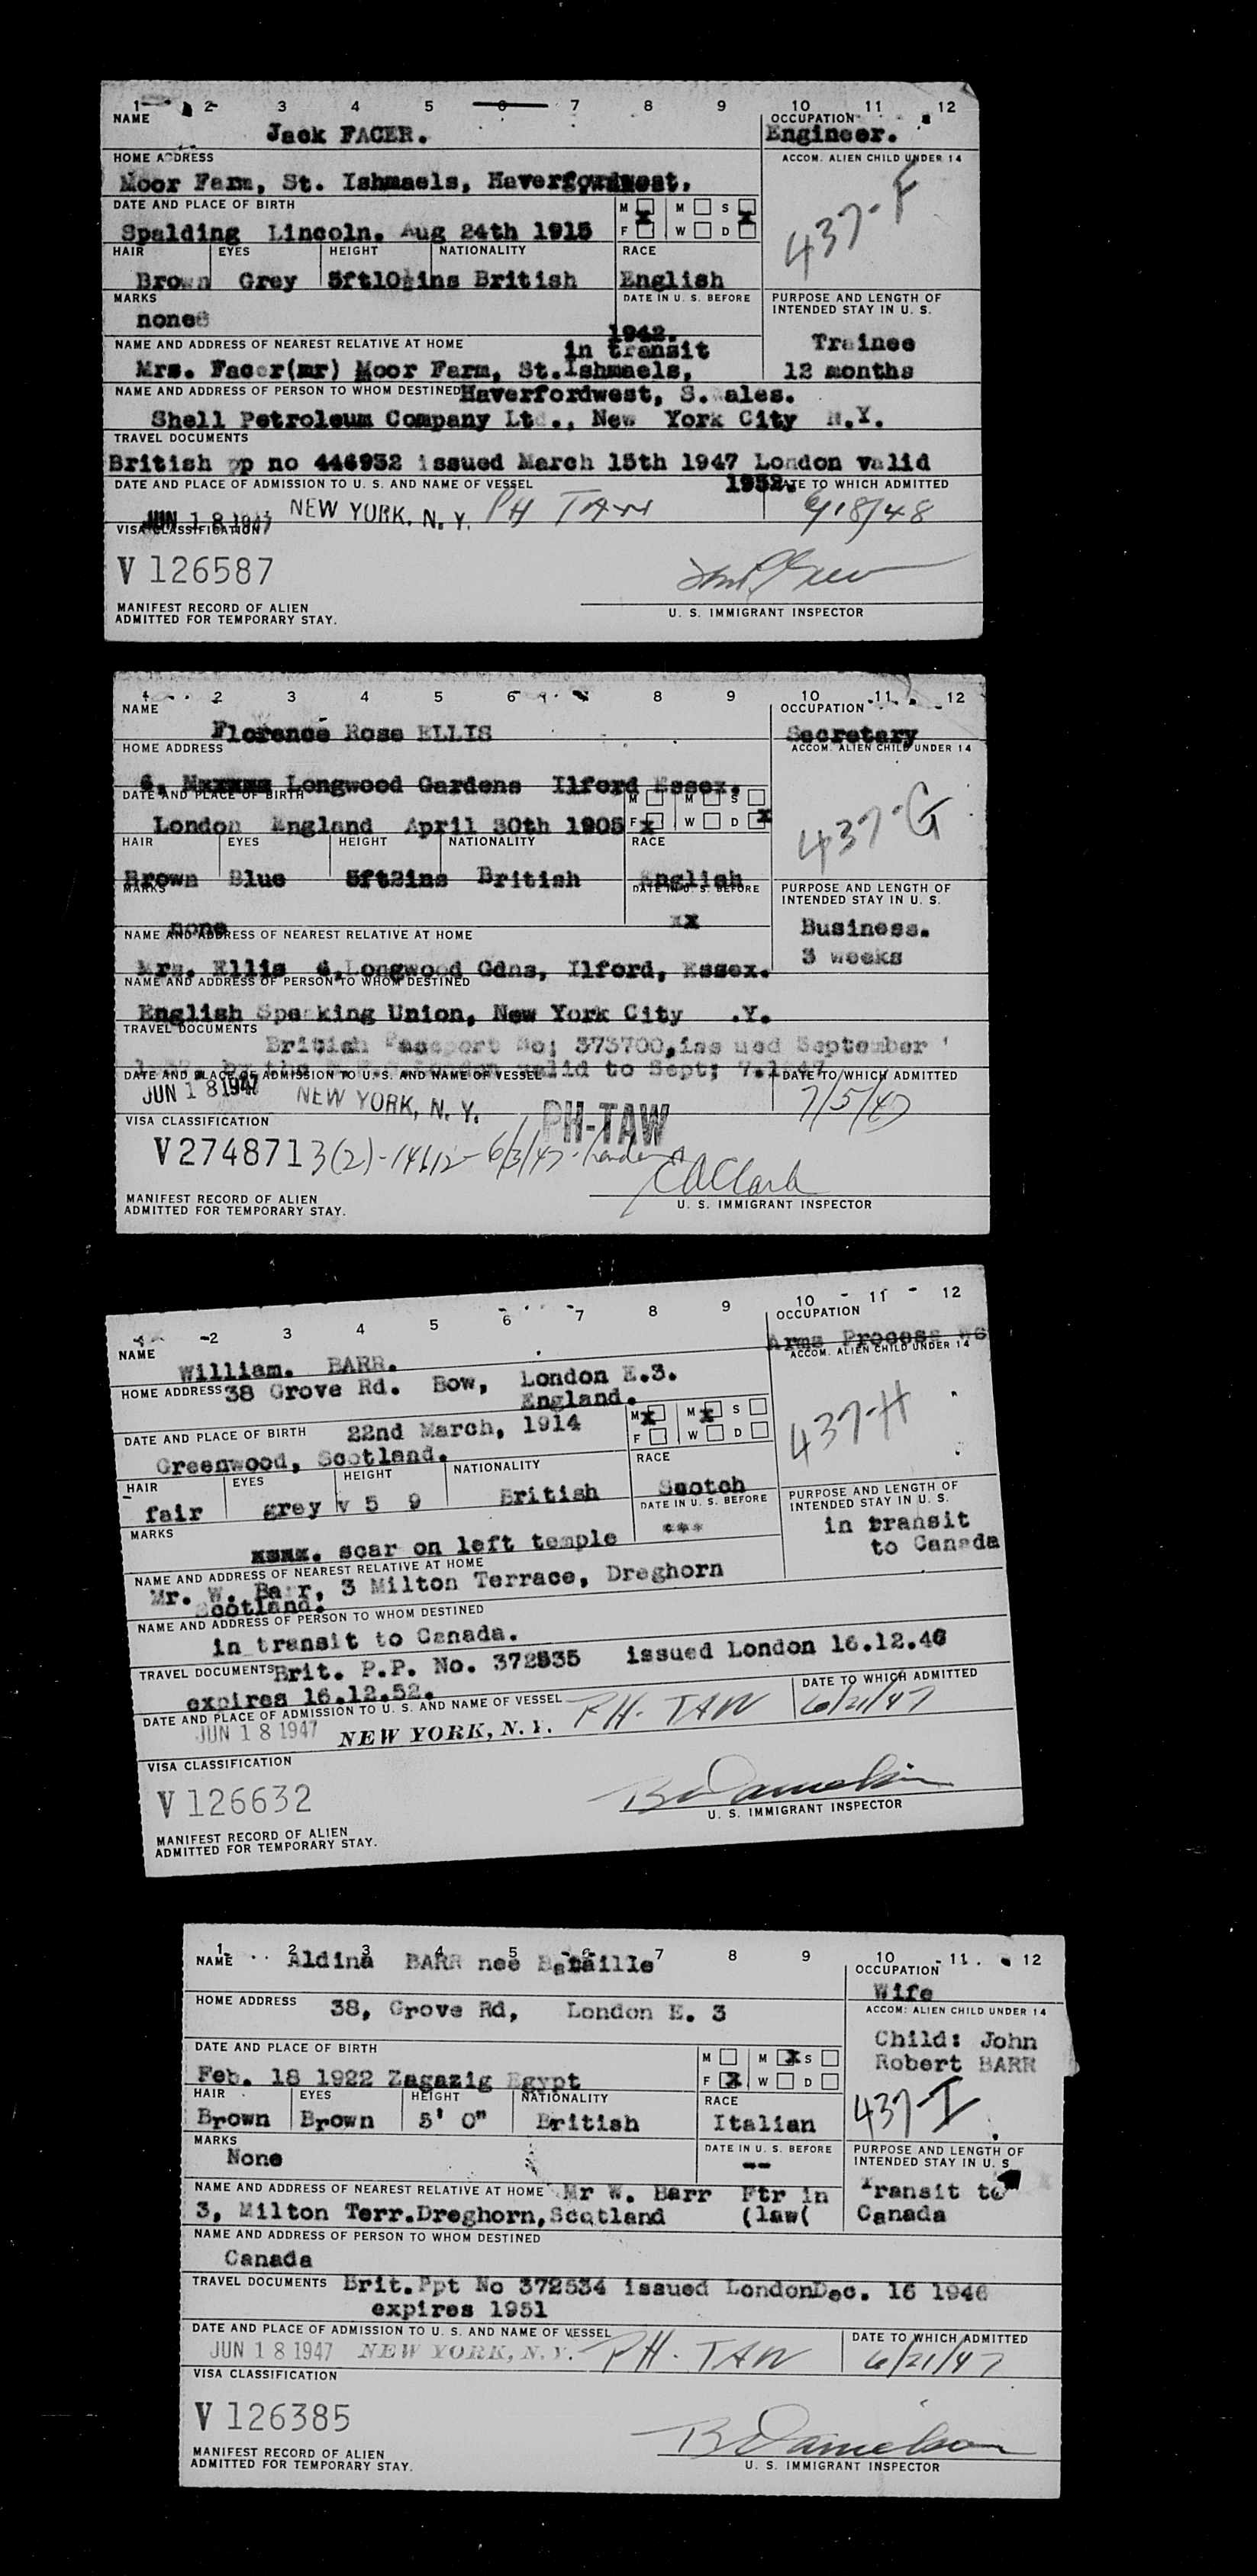 1 2 3 4 5 6 7 8 9 10 11 12
NAME OCCUPATION
Jack FACER. Engineer.
HOME ADDRESS ACCOM. ALIEN CHILD UNDER 14
Moor Farm, St. Ishmaels, Haverfordwest. 437-F
DATE AND PLACE OF BIRTH M M S
Spalding Lincoln. Aug 24th 1915 F W D
HAIR EYES HEIGHT NATIONALITY RACE
Brown Grey 5ft10½ins British English
MARKS DATE IN U. S. BEFORE PURPOSE AND LENGTH OF
INTENDED STAY IN U. S.
none
1942.
NAME AND ADDRESS OF NEAREST RELATIVE AT HOME in transit Trainee
Mrs. Facer(mr) Moor Farm, St.Ishmaels, 12 months
NAME AND ADDRESS OF PERSON TO WHOM DESTINED Haverfordwest, S. ales.
Shell Petroleum Company Ltd., New York City N.Y.
TRAVEL DOCUMENTS
British pp no 446952 issued March 15th 1947 London valid
DATE AND PLACE OF ADMISSION TO U. S. AND NAME OF VESSEL 1952. DATE TO WHICH ADMITTED
JUN 18 1947 NEW YORK, N. Y. PH TAW 6/18/48
VISA CLASSIFICATION
V 126587
MANIFEST RECORD OF ALIEN
ADMITTED FOR TEMPORARY STAY. U. S. IMMIGRANT INSPECTOR
1 2 3 4 5 6 7 8 9 10 11 12
NAME OCCUPATION
Florence Rose ELLIS Secretary
HOME ADDRESS ACCOM. ALIEN CHILD UNDER 14
6, Longwood Gardens Ilford Essex.
DATE AND PLACE OF BIRTH M M S
London England April 30th 1905 F x W D x 437-G
HAIR EYES HEIGHT NATIONALITY RACE
Brown Blue 5ft2ins British English
MARKS DATE IN U. S. BEFORE PURPOSE AND LENGTH OF
INTENDED STAY IN U. S.
none xx Business.
NAME AND ADDRESS OF NEAREST RELATIVE AT HOME 3 weeks
Mrs. Ellis 6,Longwood Gdns, Ilford, Essex.
NAME AND ADDRESS OF PERSON TO WHOM DESTINED
English Speaking Union, New York City .Y.
TRAVEL DOCUMENTS
British Passport No; 373700,iss ued September
valid to Sept; 7.
DATE AND PLACE OF ADMISSION TO U. S. AND NAME OF VESSEL DATE TO WHICH ADMITTED
JUN 18 1947 NEW YORK, N. Y. PH-TAW 7/5/47
VISA CLASSIFICATION
V274871 3(2)-14612- 6/3/47- London
CAClark
MANIFEST RECORD OF ALIEN
ADMITTED FOR TEMPORARY STAY. U. S. IMMIGRANT INSPECTOR
1 2 3 4 5 6 7 8 9 10 11 12
OCCUPATION
NAME Arms Process
William. BARR. ACCOM. ALIEN CHILD UNDER 14
HOME ADDRESS 38 Grove Rd. Bow, London E.3.
England.
DATE AND PLACE OF BIRTH 22nd March, 1914 M x M x S 437-H
Greenwood, Scotland. F W D
HAIR EYES HEIGHT NATIONALITY RACE
fair grey v 5 9 British Scotch
MARKS DATE IN U. S. BEFORE PURPOSE AND LENGTH OF
INTENDED STAY IN U. S.
scar on left temple *** in transit
to Canada
NAME AND ADDRESS OF NEAREST RELATIVE AT HOME
Mr. W. Barr, 3 Milton Terrace, Dreghorn
Scotland.
NAME AND ADDRESS OF PERSON TO WHOM DESTINED
in transit to Canada.
TRAVEL DOCUMENTS Brit. P.P. No. 372535 issued London 16.12.46
expires 16.12.52.
DATE AND PLACE OF ADMISSION TO U. S. AND NAME OF VESSEL DATE TO WHICH ADMITTED
JUN 18 1947 NEW YORK, N. Y. PH. TAW 6/21/47
VISA CLASSIFICATION
V 126632 B Danielson
U. S. IMMIGRANT INSPECTOR
MANIFEST RECORD OF ALIEN
ADMITTED FOR TEMPORARY STAY.
1 2 3 4 5 6 7 8 9 10 11 12
NAME Aldina BARR neé Bataille OCCUPATION
Wife
HOME ADDRESS 38, Grove Rd, London E. 3 ACCOM. ALIEN CHILD UNDER 14
Child: John
DATE AND PLACE OF BIRTH M M x S Robert BARR
Feb. 18 1922 Zagazig Egypt F x W D
HAIR EYES HEIGHT NATIONALITY RACE 437-I
Brown Brown 5' 0" British Italian
MARKS DATE IN U. S. BEFORE PURPOSE AND LENGTH OF
INTENDED STAY IN U. S.
None --
NAME AND ADDRESS OF NEAREST RELATIVE AT HOME Mr W. Barr Ftr in Transit to
3, Milton Terr.Dreghorn,Scotland (law( Canada
NAME AND ADDRESS OF PERSON TO WHOM DESTINED
Canada
TRAVEL DOCUMENTS Brit.Ppt No 372534 issued LondonDec. 16 1946
expires 1951
DATE AND PLACE OF ADMISSION TO U. S. AND NAME OF VESSEL DATE TO WHICH ADMITTED
JUN 18 1947 NEW YORK, N. Y. PH. TAW 6/21/47
VISA CLASSIFICATION
V 126385 B Danielson
MANIFEST RECORD OF ALIEN
ADMITTED FOR TEMPORARY STAY. U. S. IMMIGRANT INSPECTOR